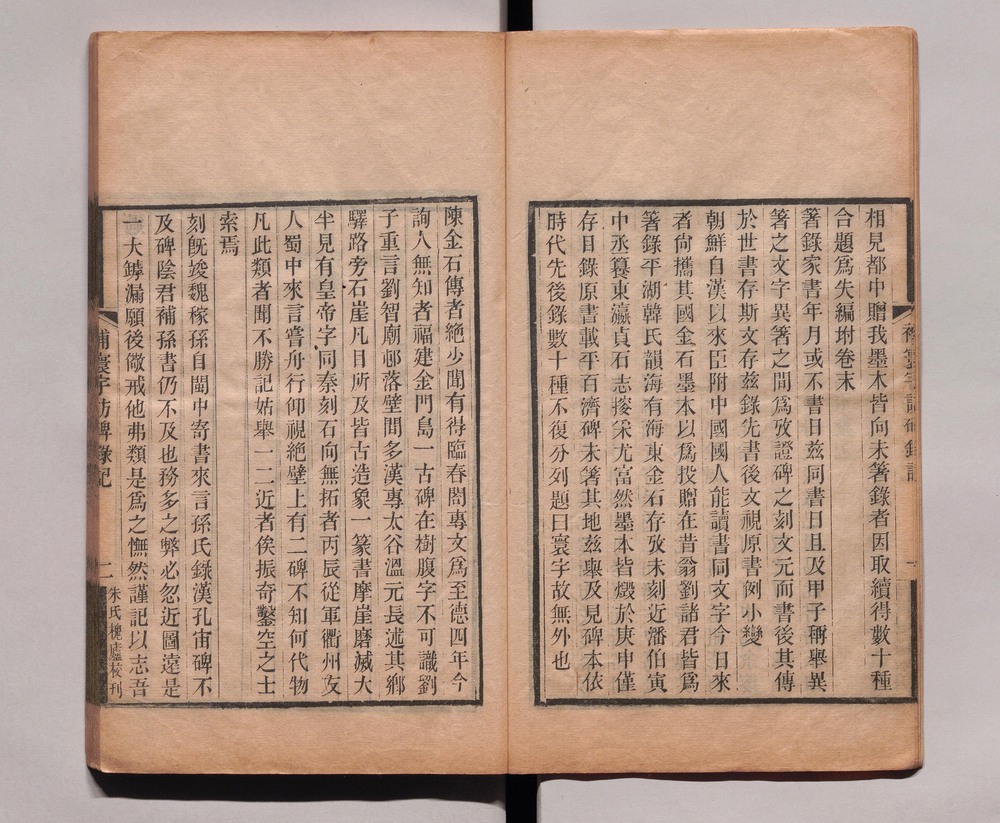 相見都中贈我墨本皆向未箸錄者因取續得數十種
合題爲失編坿卷末
箸錄家書年月或不書日兹同書日且及甲子稱舉異
箸之文字異箸之間爲攷證碑之刻文元而書後其傳
於世書存斯文存兹錄先書後文視原書例小變
朝鮮自漢以來臣附中國國人能讀書同文字今日來
者尙攜其國金石墨本以爲投贈在昔翁劉諸君皆爲
箸錄平湖韓氏韻海有海東金石存攷未刻近潘伯寅
中丞篹東瀛貞石志搜采尤富然墨本皆燬於庚申僅
存目錄原書載平百濟碑未箸其地兹舉及見碑本依
時代先後錄數十種不復分列題曰寰宇故無外也
陳金石傳者絶少聞有得臨春閣專文爲至德四年今
詢人無知者福建金門島一古碑在樹腹字不可識劉
子重言劉智廟邨落壁間多漢專太谷溫元長述其鄉
驛路旁石崖凡目所及皆古造象一篆書摩崖磨滅大
半見有皇帝字同秦刻石向無拓者丙辰從軍衢州友
人蜀中來言嘗舟行仰視絶壁上有二碑不知何代物
凡此類者聞不勝記姑舉一二近者俟振奇鑿空之士
索焉
刻旣竣魏稼孫自閩中寄書來言孫氏錄漢孔宙碑不
及碑陰君補孫書仍不及也務多之弊必忽近圖遠是
一大罅漏願後儆戒他弗類是爲之憮然謹記以志吾
補寰宇訪碑錄記
二
朱氏槐廬校刊